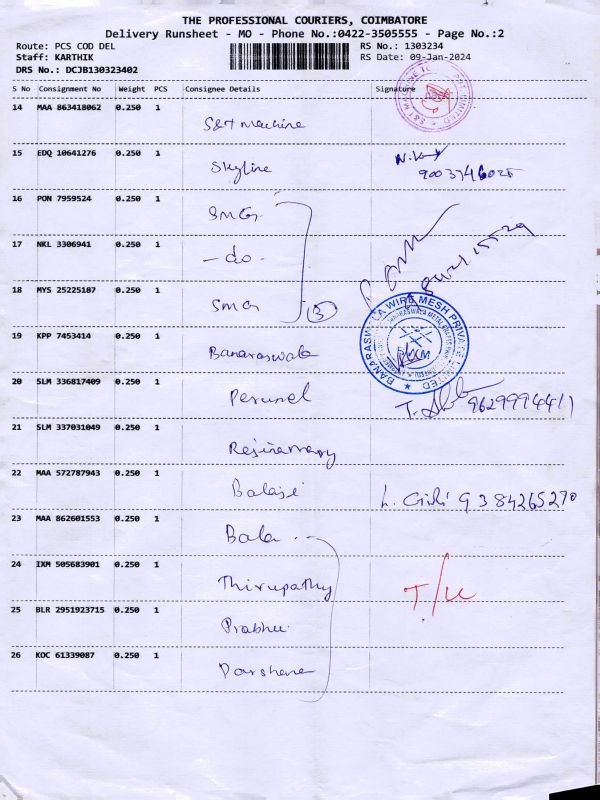 THE PROFESSIONAL COURIERS, COIMBATORE
Delivery Runsheet - MO - Phone No.:0422-3505555 - Page No.:2
Route: PCS COD DEL RS No.: 1303234
Staff: KARTHIK RS Date: 09-Jan-2024
DRS No.: DCJB130323402
S No Consignment No Weight PCS Consignee Details Signature
14 MAA 863418062 0.250 1 S&T Machine
15 EDQ 10641276 0.250 1 Skyline
16 PON 7959524 0.250 1 SMG
17 NKL 3306941 0.250 1 -do-
18 MYS 25225187 0.250 1 SMG 3
BANARASWALA WIRE MESH PRIVATE LIMITED
19 KPP 7453414 0.250 1 Banaraswala
20 SLM 336817409 0.250 1 9629994411
21 SLM 337031049 0.250 1
22 MAA 572787943 0.250 1 Balaji L. Giri 9384265270
23 MAA 862601553 0.250 1 Bala
24 IXM 505683901 0.250 1 Thirupathy T/U
25 BLR 2951923715 0.250 1 Prabhu
26 KOC 61339087 0.250 1 Darshana